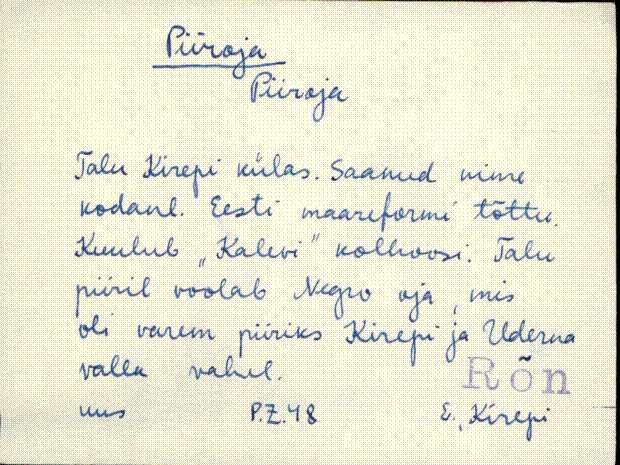 Piiroja
Piiroja
Talu Kirepi külas. Saanud nime
kodanl. Eesti maareformi tõttu.
Kuulub „Kalevi" kolhoosi. Talu
piiril voolab Negro oja, mis
oli varem piiriks Kirepi ja Uderna
valla vahel.
Rõn
uus P.Z.48 E. Kirepi